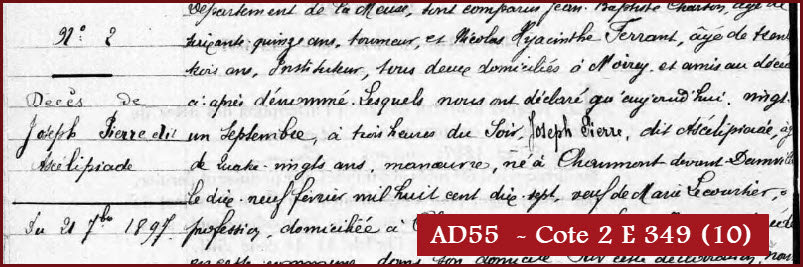 Département de la Meuse, sont comparus Jean-Baptiste Charton, âgé de
N° 2
soixante quinze ans, tourneur, et Nicolas Hyacinthe Ferrant, âgé de trente
trois ans, Instituteur, tous deux domiciliés à Moirey et amis au décédé
Décès de
ci-après dénommé. Lesquels nous ont déclaré qu'aujourd'hui vingt
Joseph Pierre dit
un Septembre, à trois heures du Soir, Joseph Pierre, dit Asclépiade, â
Asclépiade
de quatre-vingts ans, manœuvre, né à Chaumont devant Damvill
le dix-neuf février mil huit cent dix-sept, veuf de Marie Lecourtier,
Du 21 7bre 1897.
profession, domiciliée à
AD55 - Cote 2 E 349 (10)
en cette commune, dans son domicile. Sur cette déclaration, nous